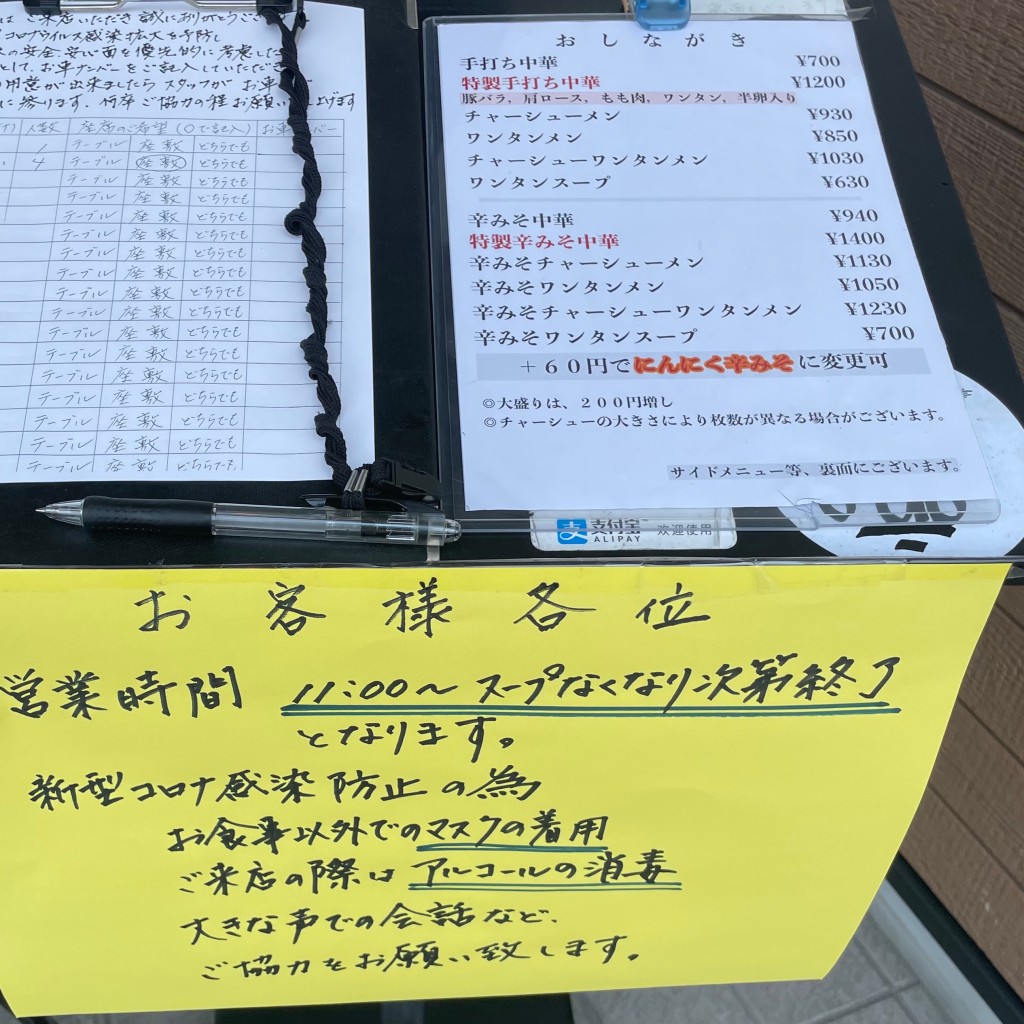 は ご来店いただき 誠にありがとうござい
コロナウイルス感染拡大を予防し
の安全・安心面を優先的に考慮した
として、お車ナンバーをご記入していただき
用意が出来ましたら スタッフが お車
に参ります。何卒ご協力の程お願い 上げます
人数 座席のご希望(〇で記入) お車 バー
1 テーブル 座敷 どちらでも
4 テーブル 座敷 どちらでも
テーブル 座敷 どちらでも
テーブル 座敷 どちらでも
テーブル 座敷 どちらでも
テーブル 座敷 どちらでも
テーブル 座敷 どちらでも
テーブル 座敷 どちらでも
テーブル 座敷 どちらでも
テーブル 座敷 どちらでも
テーブル 座敷 どちらでも
テーブル 座敷 どちらでも
テーブル 座敷 どちらでも
テーブル 座敷 どちらでも
テーブル 座敷 どちらでも
テーブル 座敷 どちらでも
おしながき
手打ち中華 ¥700
特製手打ち中華 ¥1200
豚バラ, 肩ロース, もも肉, ワンタン, 半卵入り
チャーシューメン ¥930
ワンタンメン ¥850
チャーシューワンタンメン ¥1030
ワンタンスープ ¥630
辛みそ中華 ¥940
特製辛みそ中華 ¥1400
辛みそチャーシューメン ¥1130
辛みそワンタンメン ¥1050
辛みそチャーシューワンタンメン ¥1230
辛みそワンタンスープ ¥700
+60円でにんにく辛みそに変更可
◎大盛りは、200円増し
◎チャーシューの大きさにより枚数が異なる場合がございます。
サイドメニュー等、裏面にございます。
支 支付宝 欢迎使用
ALIPAY
お客様各位
営業時間 11:00~スープなくなり次第終了
となります。
新型コロナ感染防止の為
お食事以外でのマスクの着用
ご来店の際はアルコールの消毒
大きな声での会話など、
ご協力をお願い致します。